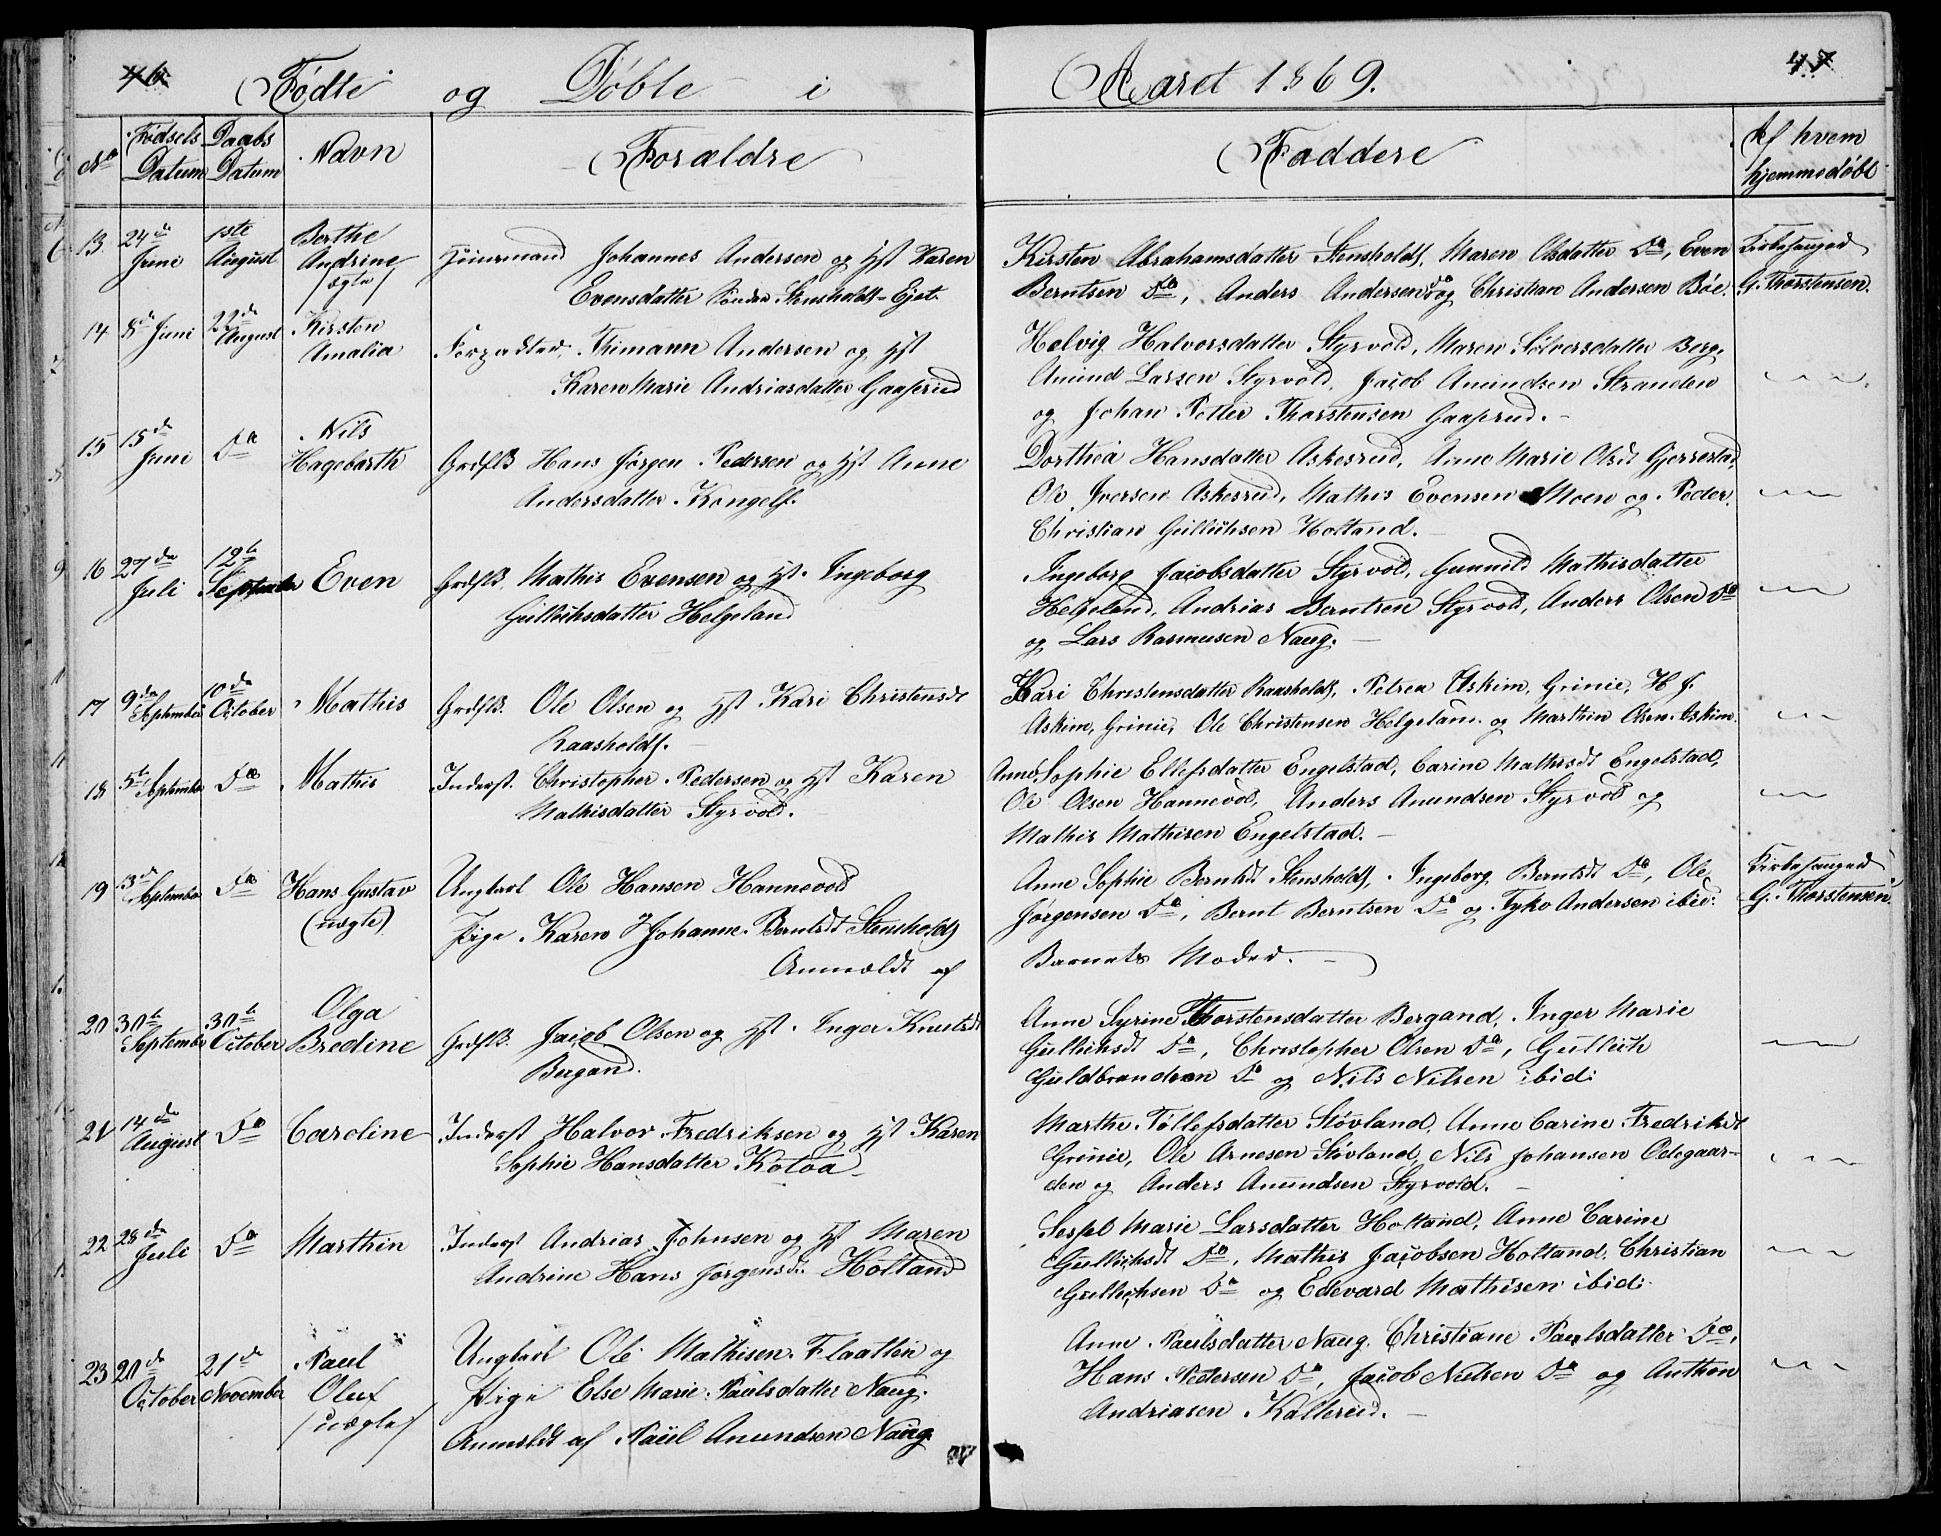 46. Fødte og Døbte i Aaret 1869. 47
No Fødsels Datum Daabs Datum Navn Forældre Faddere Af hvem hjemmedøbt
13. 24de Juni 1ste August Berthe Andrine /ægte/ Huusmand Johannes Andersen og Hst Karen
Evensdatter Søndre Stensholdt-Ejet.
Kirsten Abrahamsdatter Stensholdt, Maren Olsdatter Do, Even
Berntsen Do, Anders Andersen Do og Christian Andersen Bøe.
Kirkesanger
G. Thorstensen.
14 8de Juni 22de August Kirsten Amalia Forpagter, Thimann Andersen og Hst
Karen Marie Andriasdatter Gaaserud
Helvig Halvorsdatter Styrvold, Maren Sølversdatter Berg,
Amund Larsen Styrvold, Jacob Amundsen Stranden
og Johan Petter Thorstensen Gaaserud.
15 15de Juni Do Nils Hagebarth Grdsb Hans Jørgen Pedersen og Hst Anne
Andersdatter Kongelf.
Dorthea Hansdatter Askesrud, Anne Marie Olsdt Gjerrestad,
Ole Iversen Askesrud, Mathis Evensen Moen og Peder
Christian Gullichsen Holtand.
16 27de Juli 12te September Even Grdsb. Mathis Evensen og Hst. Ingeborg
Gullichsdatter Helgeland
Ingeborg Jacobsdatter Styrvold, Gunnild Mathisdatter
Helgeland, Andrias Berntsen Styrvold, Anders Olsen Do
og Lars Rasmusen Naug.
17 9de September 10de October Mathis Grdsb. Ole Olsen og Hst Kari Christensdt
Raasholdt.
Kari Christensdatter Raasholdt, Petrea Askim, Grinie, H J.
Askim, Grinie, Ole Christensen Helgeland og Marthin Olsen Askim.
18 5te September Do Mathis Inderst. Christopher Pedersen og Hst Karen
Mathisdatter Styrvold.
Anne Sophie Ellefsdatter Engelstad, Carine Mathisdt Engelstad,
Ole Olsen Hannevold, Anders Amundsen Styrvold og
Mathis Mathisen Engelstad.
19 13de September Do Hans Gustav (uægte) Ungkarl Ole Hansen Hannevold
Pige Karen Johanne Berntsdt Stensholdt
Anmeldt af
Anne Sophie Berntsdt Stensholdt, Ingeborg Berntsdt Do, Ole
Jørgensen Do, Bernt Berntsen Do og Tyko Andersen ibid:
Barnets Moder.
Kirkesanger
G. Thorstensen.
20 30te September 30te October Olga Bredine Grdsb. Jacob Olsen og Hst. Inger Knutsdt
Bergand.
Anne Syrine Thorstensdatter Bergand, Inger Marie
Gullichsdt Do, Christopher Olsen Do, Gullich
Guldbrandsen Do og Nils Nilsen ibid:
21 14de August Do Caroline Inderst Halvor Fredriksen og Hst Karen
Sophie Hansdatter Kolaa
Marthe Tollefsdatter Støvland, Anne Carine Fredriksdt
Grinie, Ole Arnesen Støvland, Nils Johansen Odegaar-
den og Anders Amundsen Styrvold.
22 28de Juli Do Marthin Inderst Andrias Johnsen og Hst Maren
Andrine Hans Jørgensdt. Holtand
Sessel Marie Larsdatter Holtand, Anne Carine
Gullichsdt Do, Mathis Jacobsen Holtand, Christian
Gullichsen Do og Edevard Mathisen ibid:
23 20de October 21de November Paul Oluf /uægte/ Ungkarl Ole Mathisen Flaatten og
Pige Else Marie Paulsdatter Naug.
Anmeldt af Paul Amundsen Naug.
Anne Paulsdatter Naug, Christiane Paulsdatter Do,
Hans Pedersen Do, Jacob Nielsen Do og Anthon
Andriasen Kallerud.